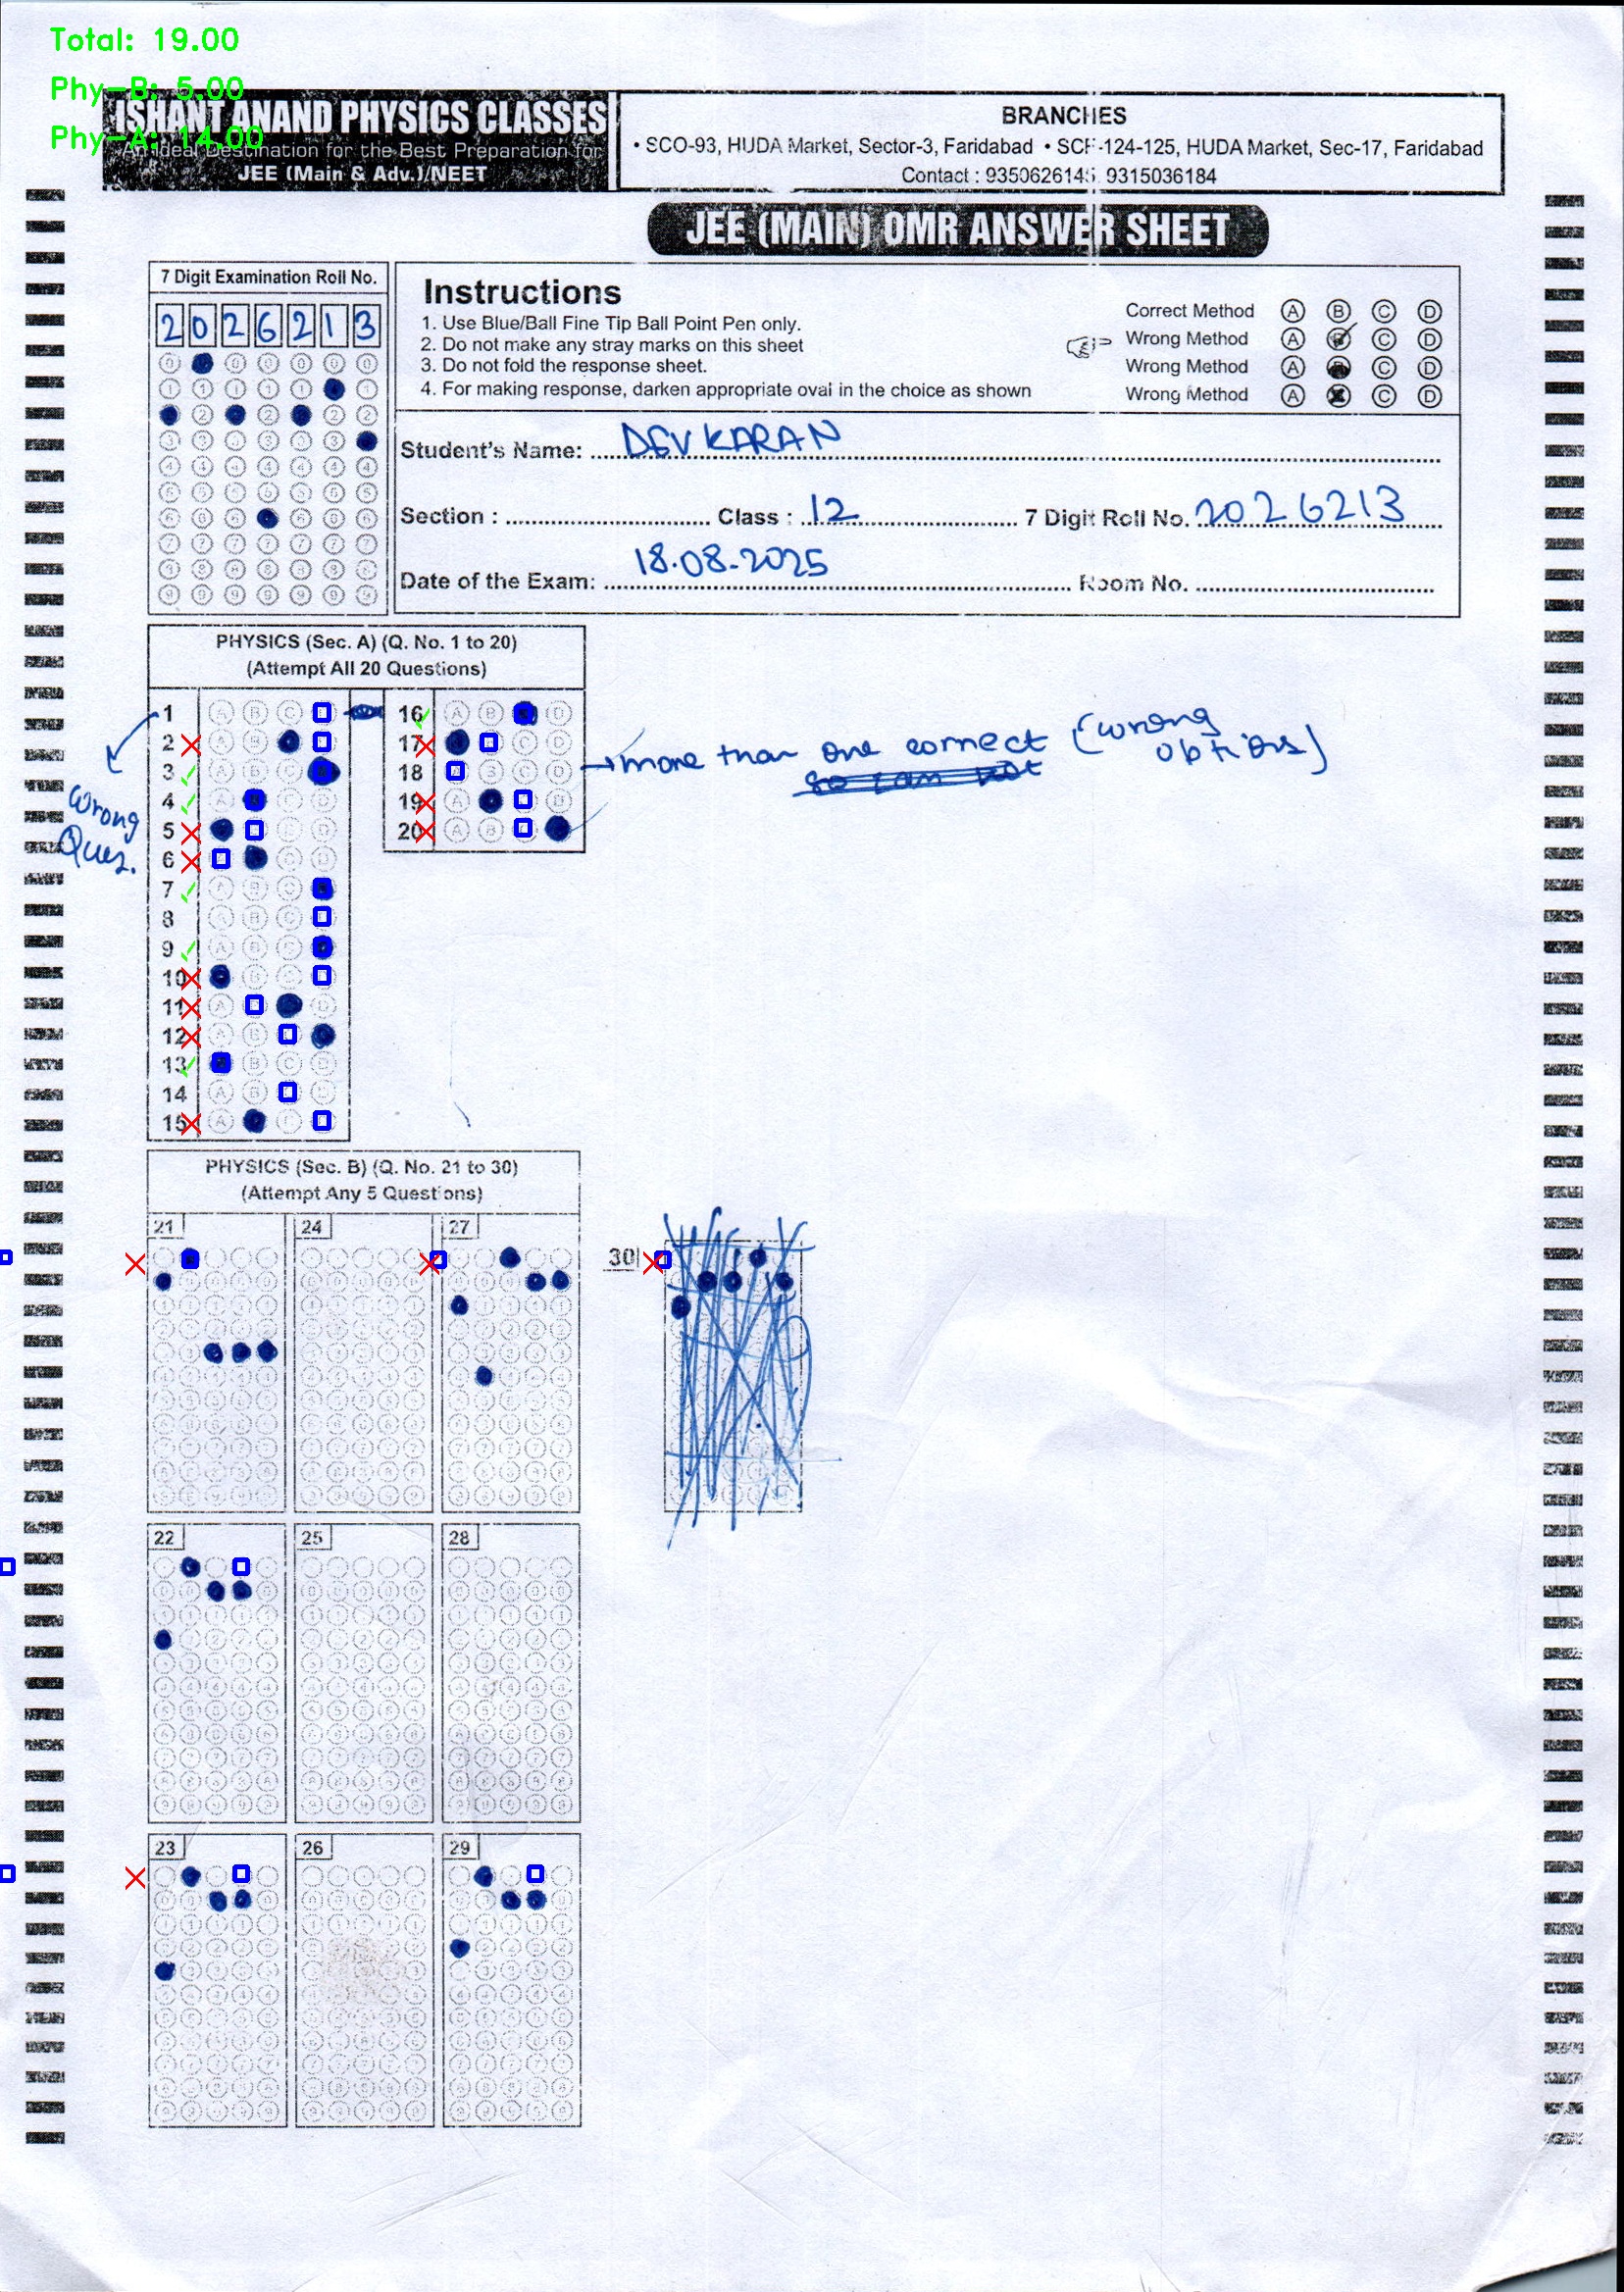 Total: 19.00
Phy-B: 5.00
Phy-A: 14.00
ISHANT ANAND PHYSICS CLASSES
An Ideal Destination for the Best Preparation for
JEE (Main & Adv.)/NEET
BRANCHES
• SCO-93, HUDA Market, Sector-3, Faridabad • SCF-124-125, HUDA Market, Sec-17, Faridabad
Contact : 9350626145, 9315036184
JEE (MAIN) OMR ANSWER SHEET
7 Digit Examination Roll No.
2 0 2 6 2 1 3
Instructions
1. Use Blue/Ball Fine Tip Ball Point Pen only.
2. Do not make any stray marks on this sheet
3. Do not fold the response sheet.
4. For making response, darken appropriate oval in the choice as shown
Correct Method A B C D
Wrong Method A C D
Wrong Method A C D
Wrong Method A C D
Student's Name: DEV KARAN
Section : Class : 12 7 Digit Roll No. 2026213
Date of the Exam: 18.08.2025 Room No.
PHYSICS (Sec. A) (Q. No. 1 to 20)
(Attempt All 20 Questions)
1
2
3
4
5
6
7
8
9
10
11
12
13
14
15
16
17
18
19
20
wrong
Ques.
more than one correct (wrong
options)
PHYSICS (Sec. B) (Q. No. 21 to 30)
(Attempt Any 5 Questions)
21 24 27
30
22 25 28
23 26 29